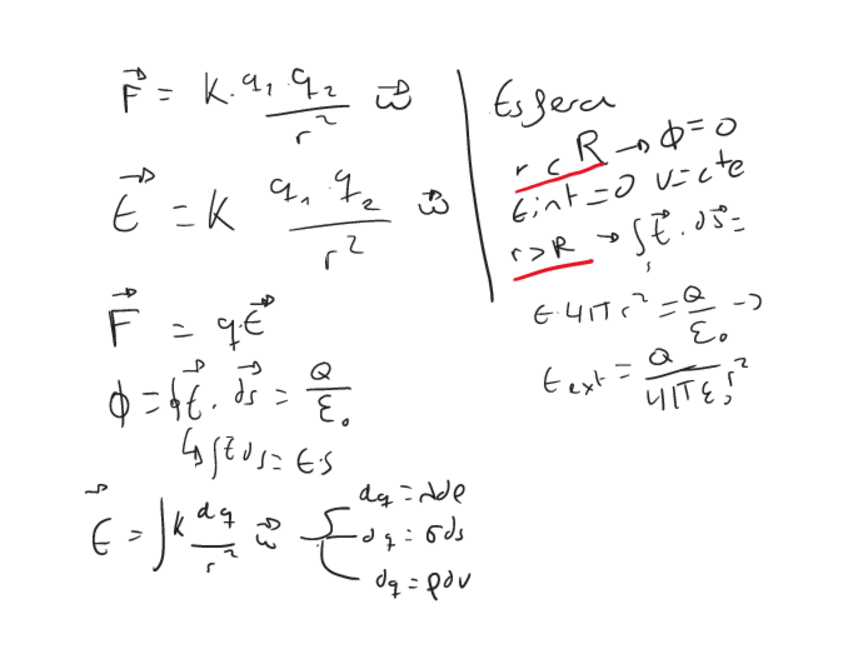 F⃗ = K · q₁ · q₂ / r² u⃗
E⃗ = K q₁ · q₂ / r² u⃗
F⃗ = q·E⃗
ϕ = ∮E⃗ · ds⃗ = Q / ε₀
↳ ∫E ds = E·s
E⃗ = ∫ K dq / r² u⃗
dq = λdl
dq = σds
dq = ρdv
Esfera
r < R → ϕ = 0
Eint = 0 V = cte
r > R → ∫s E⃗ · ds⃗ =
E·4π r² = Q / ε₀ →
Eext = Q / 4π ε₀ r²